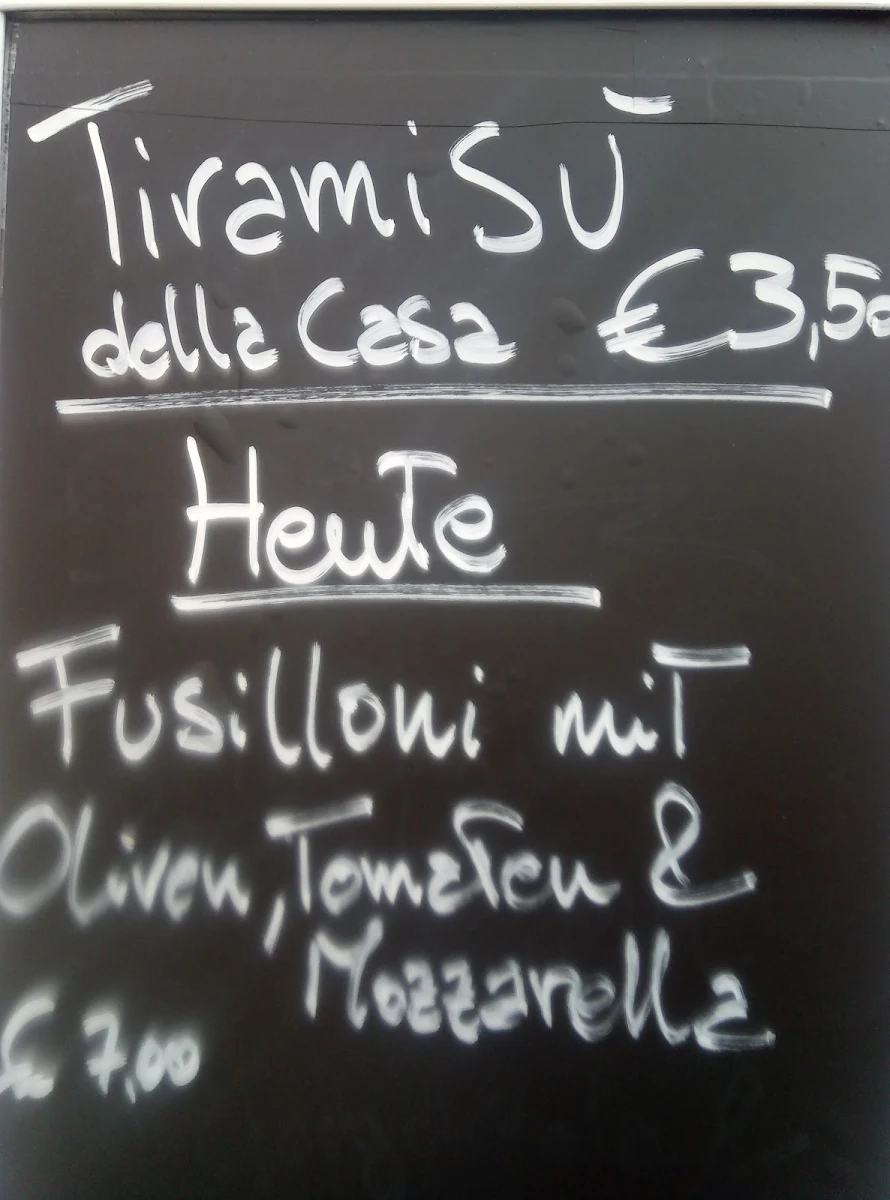 Tiramisù
della Casa €3,50
Heute
Fusilloni mit
Oliven, Tomaten &
Mozzarella
€ 7,00